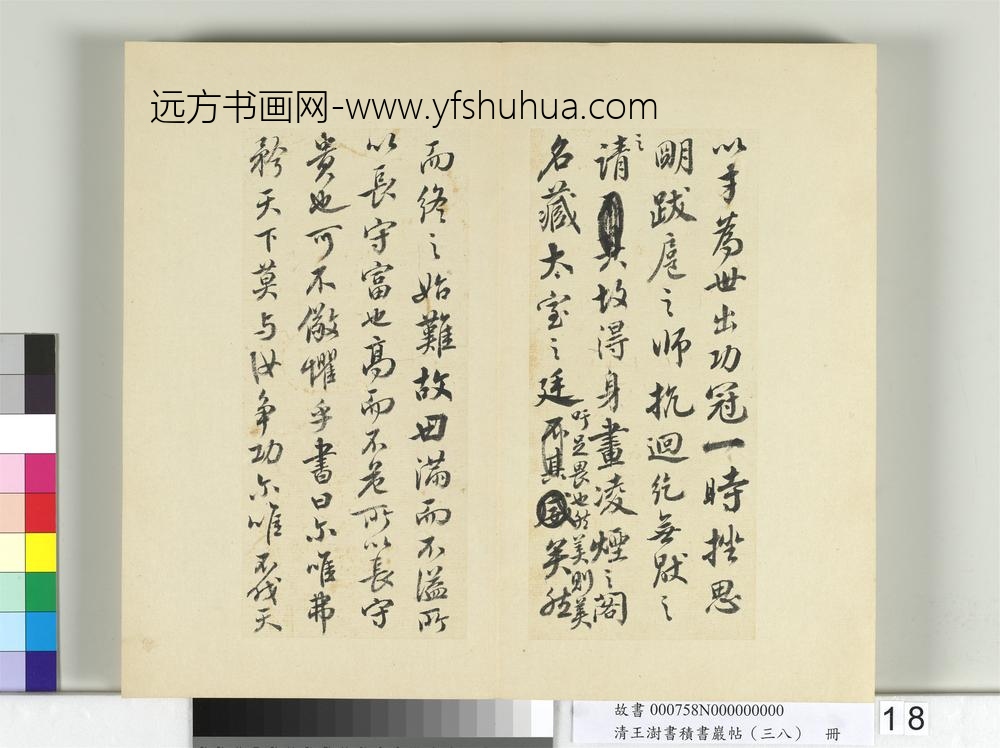 远方书画网-www.yfshuhua.com
以才為世出功冠一時挫思
明跋扈之師抗迴紇無厭之
請故得身畫凌煙之閣
之
名藏太室之廷
吁足畏也然美則美
矣然
而終之始難故曰滿而不溢所
以長守富也高而不危所以長守
貴也可不儆懼乎書曰尔唯弗
矜天下莫与汝爭功尔唯不伐天
故書 000758N000000000
清王澍書積書巖帖（三八） 冊
18